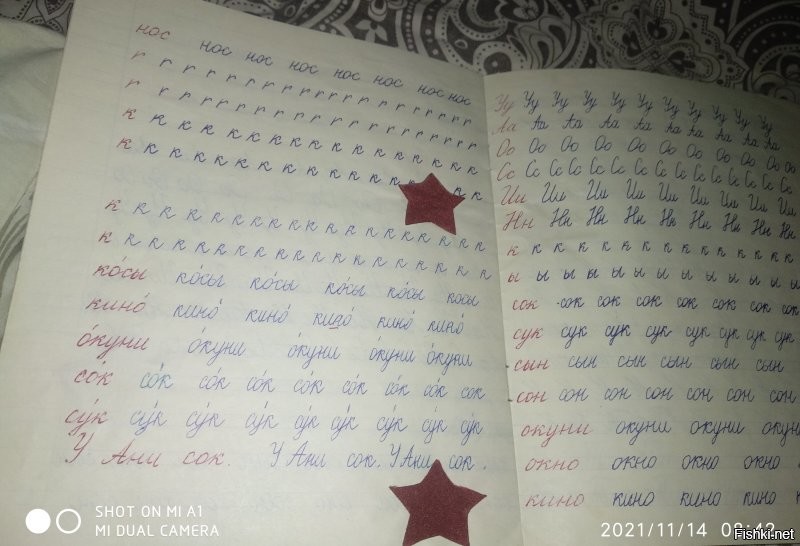 нос нос нос нос нос нос нос нос
г г г г г г г г г г г г г г г г г г
г г г г г г г г г г г г г г г г г г
к к к к к к к к к к к к к к
к к к к к к к к к к к к к к
к к к к к к к к к к к к к к к к
к к к к к к к к к к к к к к к к
ко́сы ко́сы ко́сы ко́сы ко́сы косы
кино́ кино́ кино́ кино́ кино́ кино́
о́куни о́куни о́куни о́куни о́куни
со́к со́к со́к со́к со́к со́к со́к со́к сок
су́к су́к су́к су́к су́к су́к су́к су́к су́к
У Ани сок. У Ани сок. У Ани сок.
Уу Уу Уу Уу Уу Уу Уу Уу Уу Уу
Аа Аа Аа Аа Аа Аа Аа Аа Аа
Оо Оо Оо Оо Оо Оо Оо Оо Оо
Сс Сс Сс Сс Сс Сс Сс Сс Сс Сс Сс Сс
Ии Ии Ии Ии Ии Ии Ии Ии Ии
Нн Нн Нн Нн Нн Нн Нн Нн Нн
к к к к к к к к к к к к
ы ы ы ы ы ы ы ы ы ы ы ы
сок сок сок сок сок сок сок сок
сук сук сук сук сук сук сук сук
сын сын сын сын сын сын
сон сон сон сон сон сон сон
окуни окуни окуни окуни
окно окно окно окно
кино кино кино кино
SHOT ON MI A1
MI DUAL CAMERA
2021/11/14 08:42
Fishki.net